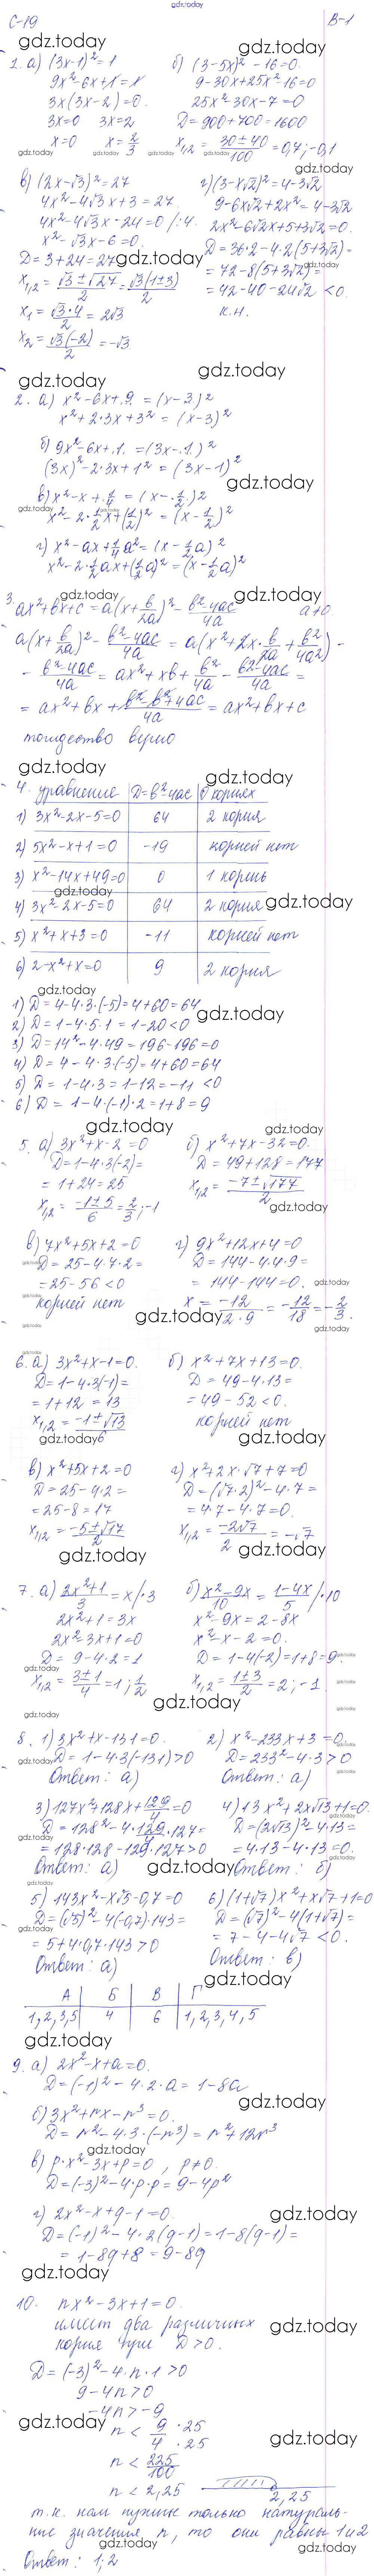 gdz.today
С-19 В-1
1. а) (3x-1)²=1
9x²-6x+1=1
3x(3x-2)=0.
3x=0 3x=2
x=0 x=2/3
б) (3-5x)²-16=0.
9-30x+25x²-16=0
25x²-30x-7=0
D=900+700=1600
x₁,₂=(30±40)/100=0,7; -0,1
в) (2x-√3)²=27
4x²-4√3x+3=27.
4x²-4√3x-24=0 /:4.
x²-√3x-6=0.
D=3+24=27
x₁,₂=(√3±√27)/2=√3(1±3)/2
x₁=√3·4/2=2√3
x₂=√3(-2)/2=-√3
г) (3-x√2)²=4-3√2
9-6x√2+2x²=4-3√2
2x²-6√2x+5+3√2=0.
D=36·2-4·2(5+3√2)=
=72-8(5+3√2)=
=72-40-24√2<0.
к.н.
2. а) x²-6x+.9.=(x-3.)²
x²+2·3x+3²=(x-3)²
б) 9x²-6x+.1.=(3x-.1.)²
(3x)²-2·3x+1²=(3x-1)²
в) x²-x+.1/4=(x-.1/2.)²
x²-2·1/2x+(1/2)²=(x-1/2)²
г) x²-ax+1/4a²=(x-1/2a)²
x²-2·1/2ax+(1/2a)²=(x-1/2a)²
3. ax²+bx+c=a(x+b/2a)²-(b²-4ac)/4a a≠0
a(x+b/2a)²-(b²-4ac)/4a=a(x²+2x·b/2a+b²/4a²)-
-(b²-4ac)/4a=ax²+xb+b²/4a-(b²-4ac)/4a=
=ax²+bx+(b²-b²+4ac)/4a=ax²+bx+c
тождество верно
4. уравнение D=b²-4ac О корнях
1) 3x²-2x-5=0 64 2 корня
2) 5x²-x+1=0 -19 корней нет
3) x²-14x+49=0 0 1 корень
4) 3x²-2x-5=0 64 2 корня
5) x²+x+3=0 -11 корней нет
6) 2-x²+x=0 9 2 корня
1) D=4-4·3·(-5)=4+60=64
2) D=1-4·5·1=1-20<0
3) D=14²-4·49=196-196=0
4) D=4-4·3·(-5)=4+60=64
5) D=1-4·3=1-12=-11<0
6) D=1-4·(-1)·2=1+8=9
5. а) 3x²+x-2=0
D=1-4·3(-2)=
=1+24=25
x₁,₂=(-1±5)/6=2/3; -1
б) x²+7x-32=0.
D=49+128=177
x₁,₂=(-7±√177)/2
в) 7x²+5x+2=0
D=25-4·7·2=
=25-56<0
корней нет
г) 9x²+12x+4=0
D=144-4·4·9=
=144-144=0.
x=-12/2·9=-12/18=-2/3.
6. а) 3x²+x-1=0.
D=1-4·3(-1)=
=1+12=13
x₁,₂=(-1±√13)/6
б) x²+7x+13=0.
D=49-4·13=
=49-52<0.
корней нет
в) x²+5x+2=0
D=25-4·2=
=25-8=17
x₁,₂=(-5±√17)/2
г) x²+2x·√7+7=0
D=(√7·2)²-4·7=
=4·7-4·7=0.
x₁,₂=-2√7/2=-√7
7. а) (2x²+1)/3=x/·3
2x²+1=3x
2x²-3x+1=0
D=9-4·2=1
x₁,₂=(3±1)/4=1; 1/2
б) (x²-9x)/10=(1-4x)/5 /·10
x²-9x=2-8x
x²-x-2=0.
D=1-4(-2)=1+8=9.
x₁,₂=(1±3)/2=2; -1.
8. 1) 3x²+x-131=0.
D=1-4·3(-131)>0
Ответ: а)
2) x²-233x+3=0.
D=233²-4·3>0
Ответ: а)
3) 127x²+128x+129/4=0
D=128²-4·129/4·127=
=128·128-129·127>0
Ответ: а)
4) 13x²+2x√13+1=0.
D=(2√13)²-4·13=
=4·13-4·13=0.
Ответ: б)
5) 143x²-x√5-0,7=0
D=(√5)²-4(-0,7)·143=
=5+4·0,7·143>0
Ответ: а)
6) (1+√7)x²+x√7+1=0
D=(√7)²-4(1+√7)=
=7-4-4√7<0.
Ответ: в)
А Б В Г
1,2,3,5 4 6 1,2,3,4,5
9. а) 2x²-x+a=0.
D=(-1)²-4·2·a=1-8a
б) 3x²+nx-n³=0.
D=n²-4·3·(-n³)=n²+12n³
в) p·x²-3x+p=0, p≠0.
D=(-3)²-4·p·p=9-4p²
г) 2x²-x+q-1=0.
D=(-1)²-4·2(q-1)=1-8(q-1)=
=1-8q+8=9-8q
10. nx²-3x+1=0.
имеет два различных
корня при D>0.
D=(-3)²-4·n·1>0
9-4n>0
-4n>-9
n<9/4 ·25/·25
n<225/100
n<2,25 2,25
т.к. нам нужны только натураль-
ные значения n, то они равны 1 и 2
Ответ: 1; 2